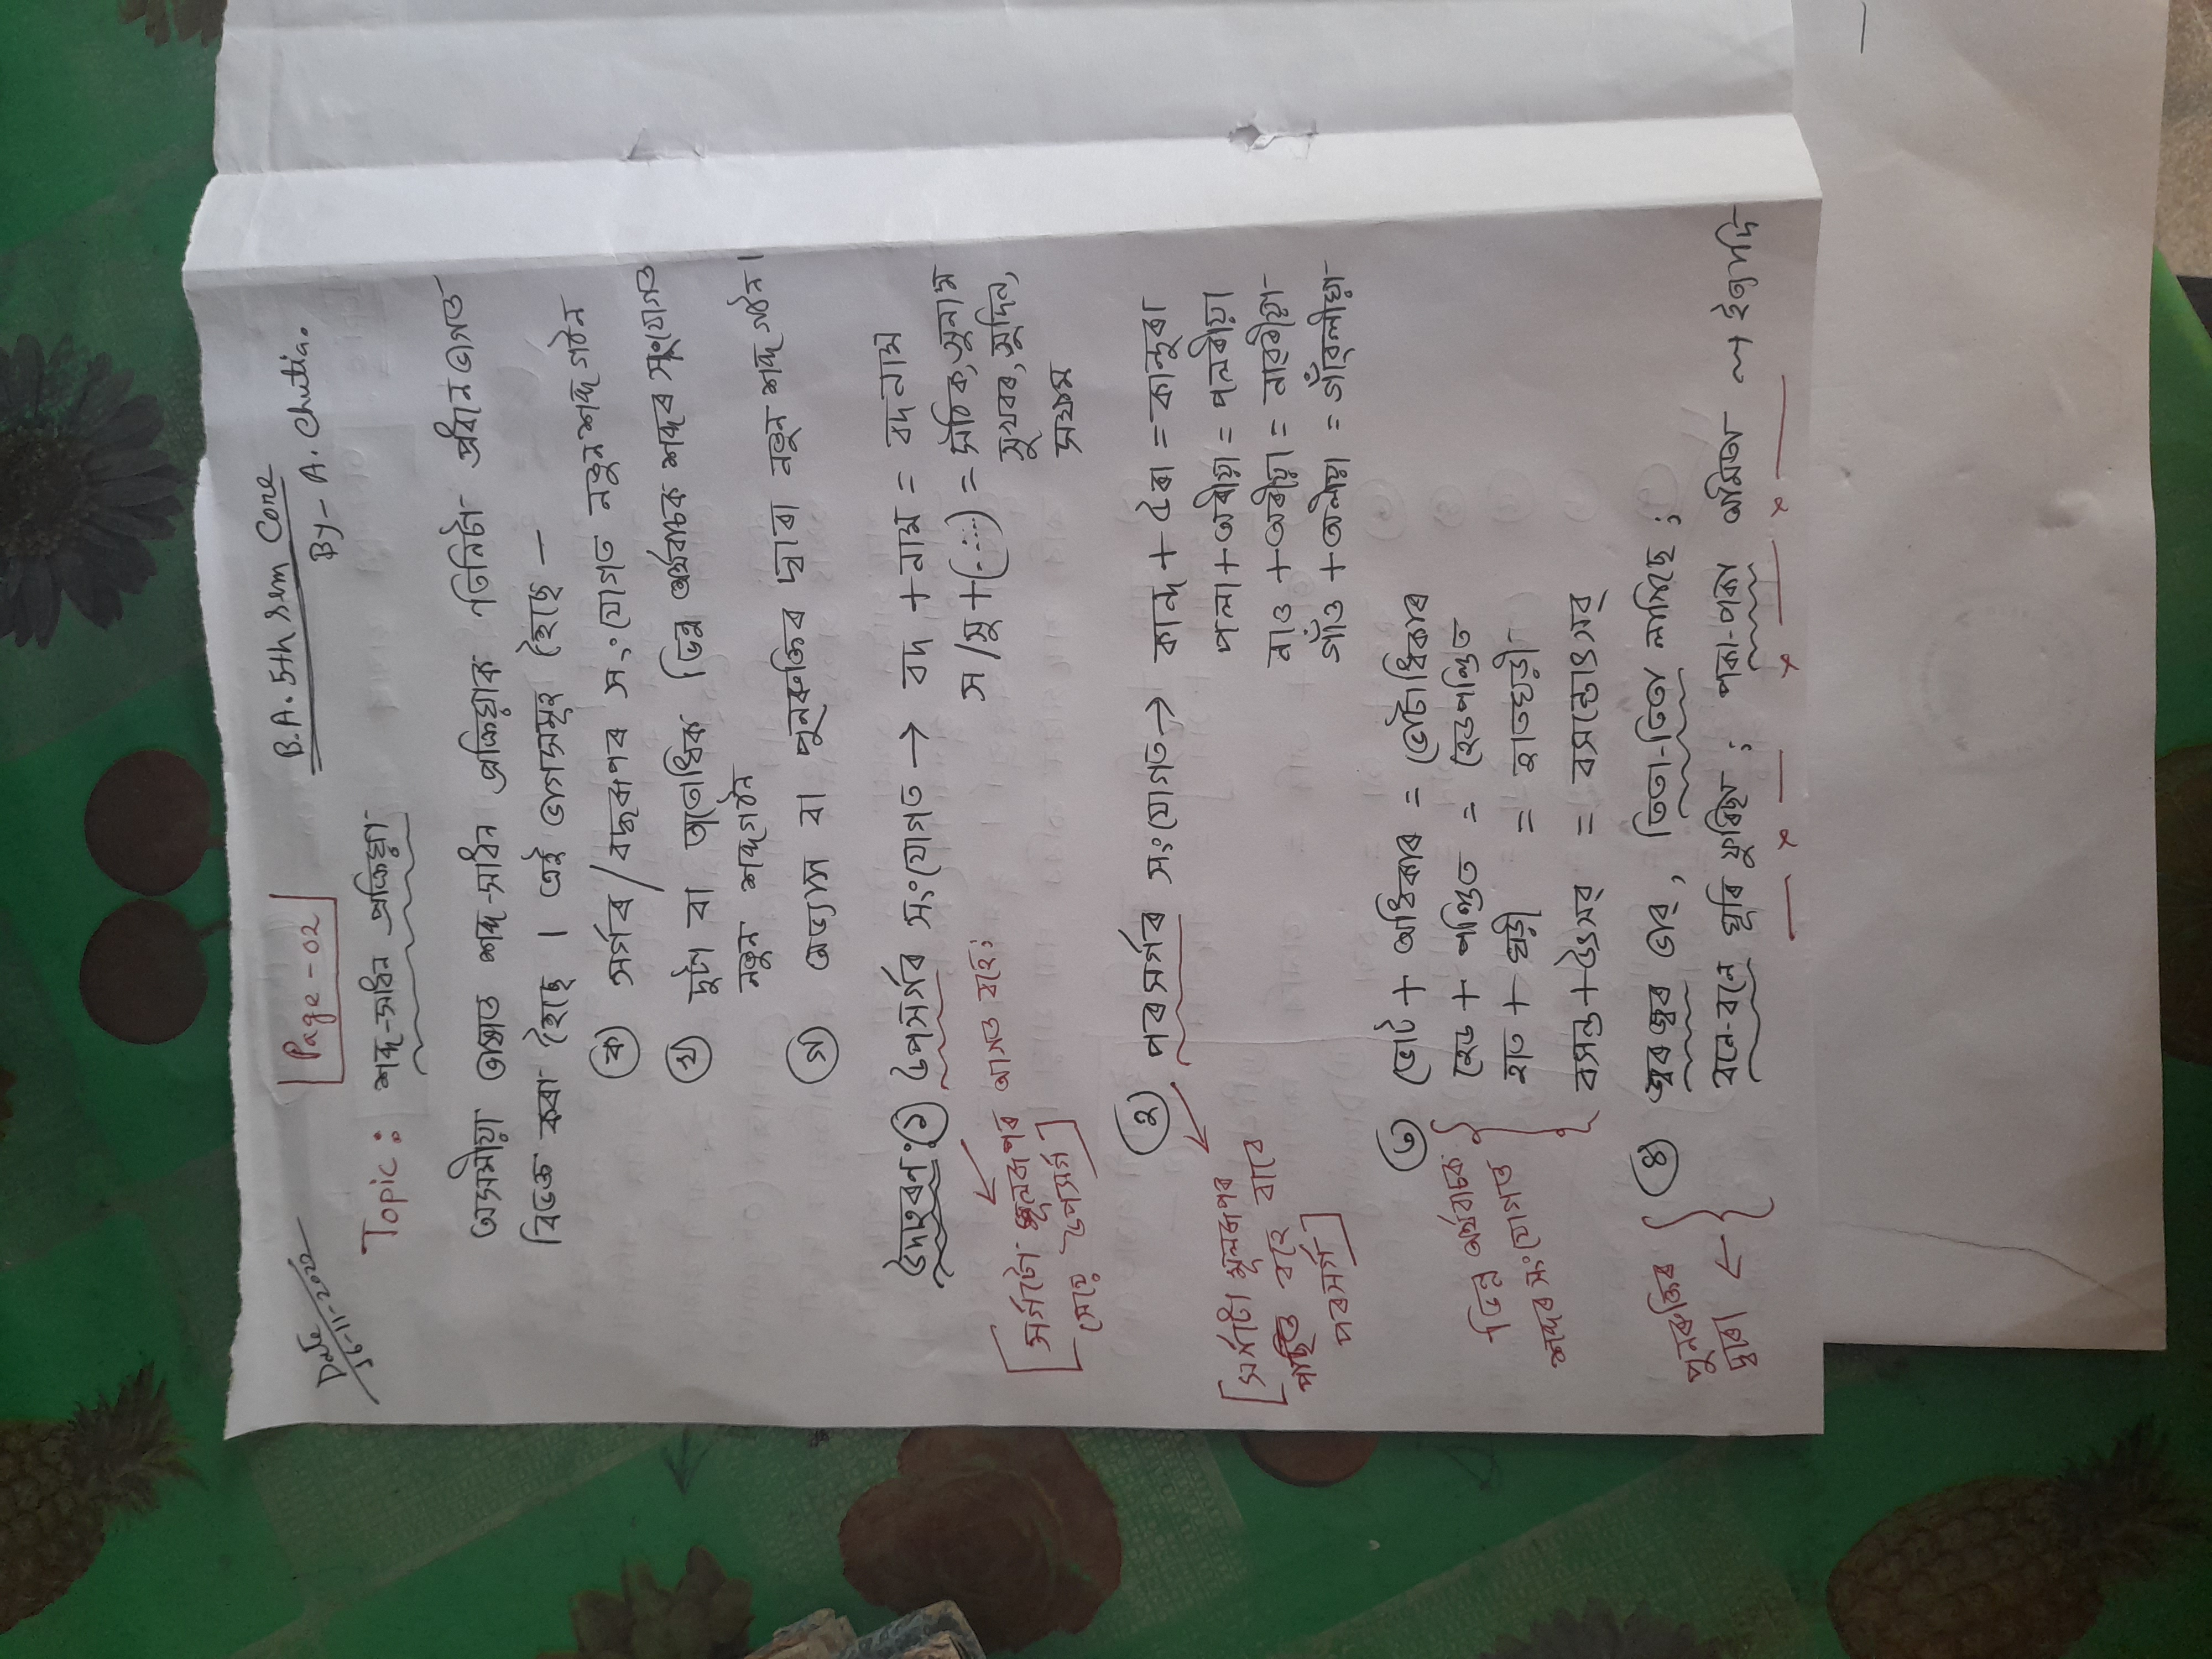 Date
16-11-2020
Page-02
B.A. 5th sem Core
By- A. Chutia.
Topic: শব্দ-সাধন প্ৰক্ৰিয়া
অসমীয়া ভাষাত শব্দ-সাধন প্ৰক্ৰিয়াক তিনিটা প্ৰধান ভাগত
বিভক্ত কৰা হৈছে। এই ভাগসমূহ হৈছে —
ক) সৰ্গৰ/বদ্ধৰূপৰ সংযোগত নতুন শব্দ গঠন
খ) দুটা বা ততোধিক ভিন্ন অৰ্থবাচক শব্দৰ সংযোগত
নতুন শব্দ গঠন
গ) অভ্যাস বা পুনৰুক্তিৰ দ্বাৰা নতুন শব্দ গঠন।
উদাহৰণ: ১) উপসৰ্গৰ সংযোগত → বদ + নাম = বদনাম
স/সু + (.....) = সঠিক, সুনাম
সুখবৰ, সুদিন,
সক্ষম
[সৰ্গটো মূলৰূপৰ আগত বহে:
সেয়ে উপসৰ্গ]
২) পৰসৰ্গৰ সংযোগত → কান্দ + উৰা = কান্দুৰা
পলা + অৰীয়া = পলৰীয়া
নাও + অৰীয়া = নাৱৰীয়া
গাঁও + অলীয়া = গাঁৱলীয়া
[সৰ্গটো মূলৰূপৰ
পাছত বহে বাবে
পৰসৰ্গ]
৩) ভোট + অধিকাৰ = ভোটাধিকাৰ
হেড + পণ্ডিত = হেডপণ্ডিত
হাত + ঘড়ী = হাতঘড়ী
বসন্ত + উৎসৱ = বসন্তোৎসৱ
ভিন্ন অৰ্থবাচক
শব্দৰ সংযোগত
৪) জ্বৰ জ্বৰ ভাব, তিতা-তিতা লাগিছে;
বনে-বনে ঘূৰি ফুৰিছা; পকা-পকা আমিতা ~ ইত্যাদি
পুনৰুক্তিৰ
দ্বাৰা
—x—x—x—